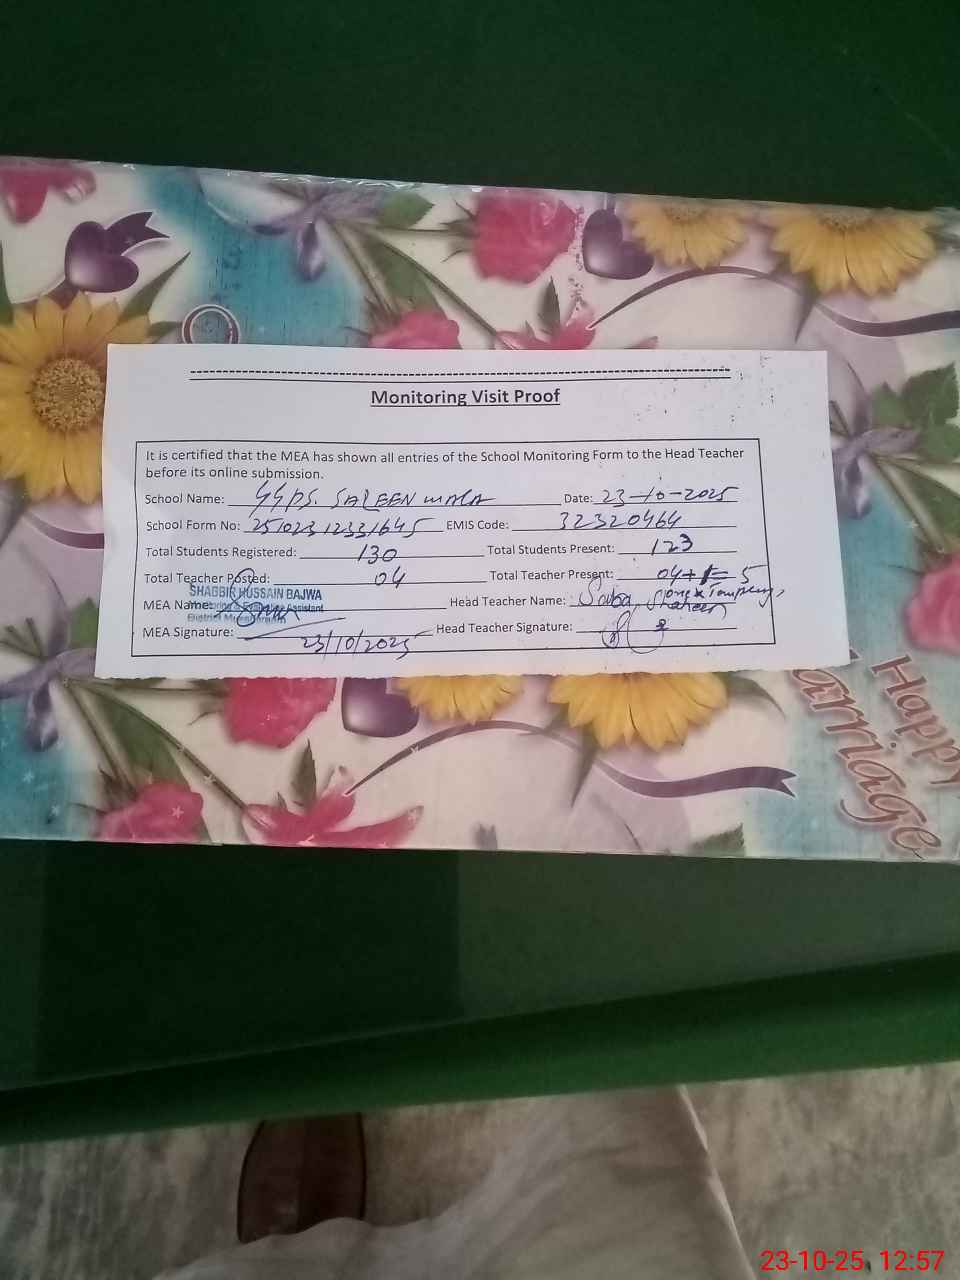 Monitoring Visit Proof
It is certified that the MEA has shown all entries of the School Monitoring Form to the Head Teacher
before its online submission.
School Name: GGPS. SALEEN WALA Date: 23-10-2025
School Form No: 25102312331645 EMIS Code: 32320464
Total Students Registered: 130 Total Students Present: 123
Total Teacher Posted: 04 Total Teacher Present: 04+1=5
SHABBIR HUSSAIN BAJWA
Monitoring & Evaluation Assistant
District Muzaffargarh
MEA Name: Head Teacher Name: Saba Shaheen
MEA Signature: 23/10/2025 Head Teacher Signature:
Happy
Marriage
23-10-25, 12:57